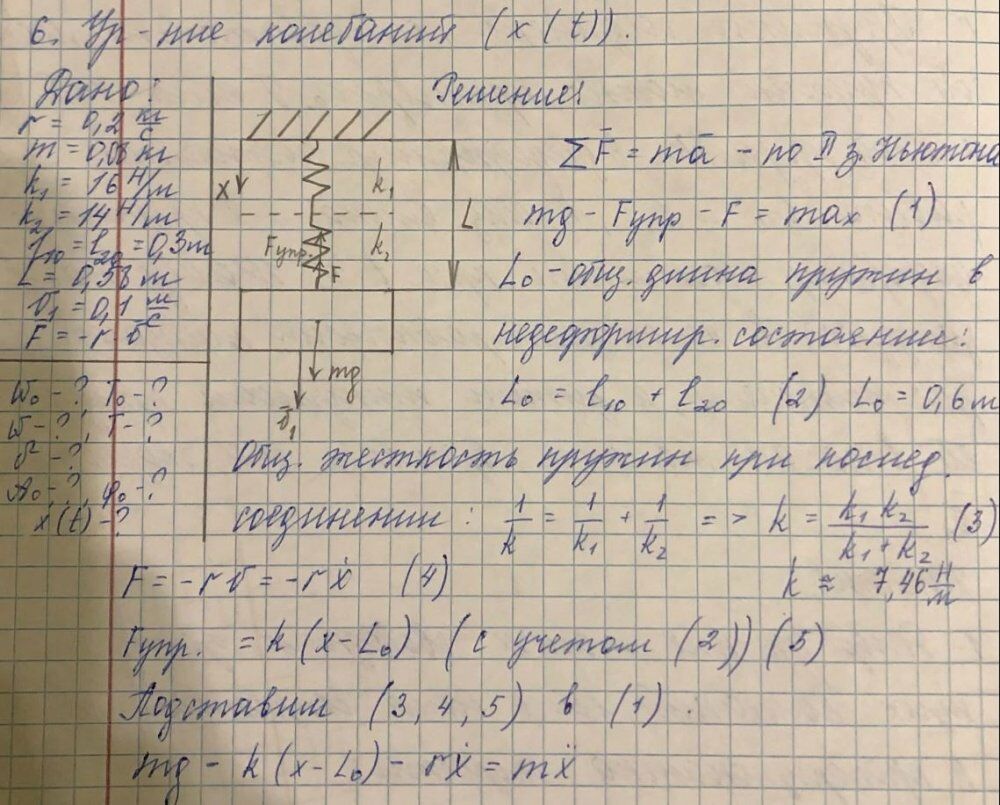 6. Ур-ние колебаний (x(t)).
Дано:
r = 0,2 кг/с
m = 0,08 кг
k₁ = 16 Н/м
k₂ = 14 Н/м
l₁₀ = l₂₀ = 0,3 м
L = 0,58 м
v₁ = 0,1 м/с
F̄ = -r · v̄
ω₀ - ?, T₀ - ?
ω - ?, T - ?
δ - ?
A₀ - ?, φ₀ - ?
x(t) - ?
Решение:
x
k₁
k₂
L
Fупр.
F
mg
v̄₁
∑F̄ = mā - по II з. Ньютона
mg - Fупр - F = maₓ (1)
L₀ - общ. длина пружин в
недеформир. состоянии:
L₀ = l₁₀ + l₂₀ (2) L₀ = 0,6 м
Общ. жесткость пружин при послед.
соединении: 1/k = 1/k₁ + 1/k₂ => k = k₁ k₂/(k₁ + k₂) (3)
k ≈ 7,46 Н/м
F = -rv = -rẋ (4)
Fупр. = k(x-L₀) (с учетом (2)) (5)
Подставим (3, 4, 5) в (1):
mg - k(x-L₀) - rẋ = mẍ